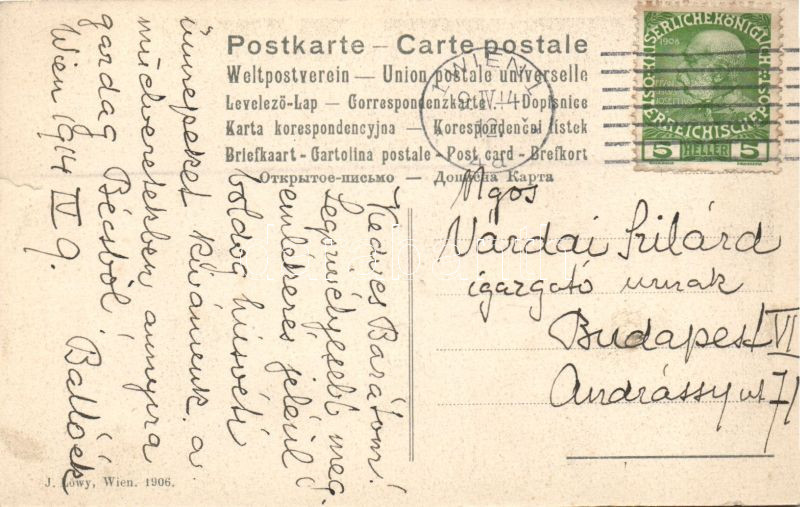 Postkarte – Carte postale
Weltpostverein — Union postale universelle
Levelező-Lap — Correspondenzkarte — Dopisnice
Karta korespondencyjna — Korespondenčai lístek
Briefkaart - Cartolina postale - Post card - Brefkort
Открытое-письмо — Дописна Карта
1908
KAISERLICHEKÖNIGLICHE
ÖSTERREICHISCHE POST
5 HELLER 5
WIEN 1
9.IV.14
Ngos
Várdai Szilárd
igazgató urnak
Budapest VI
Andrássy ut 71
Kedves Barátom!
Legszivélyesebb meg
emlékezés jeléül
boldog húsvéti
ünnepeket kivánunk a
müvészetekben annyira
gazdag Bécsből!
Wien 1914 IV 9.
J. Löwy, Wien. 1906.